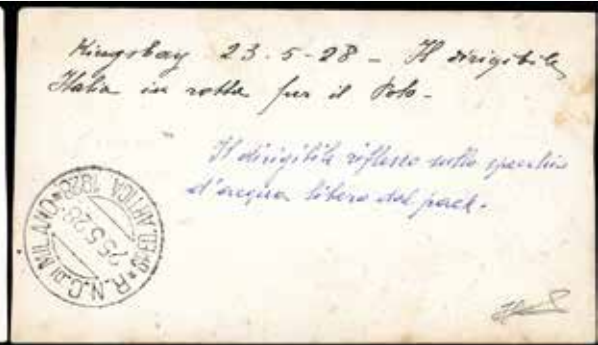 Kingsbay 23-5-28 - Il dirigibile
Italia in rotta per il Polo -
Il dirigibile riflesso nello specchio
d'acqua libero dal pack.
R.N.C. DI MILANO
ARTICA 1928
25.5.28